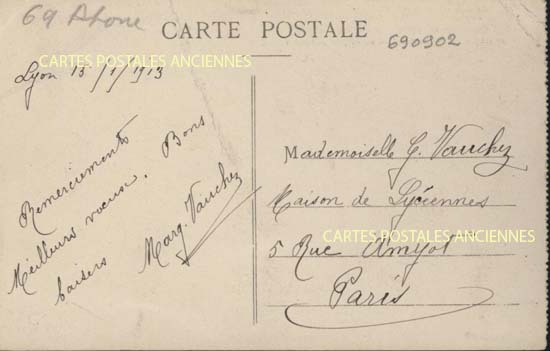 69 Rhone
CARTE POSTALE
690902
CARTES POSTALES ANCIENNES
Lyon 15/1/1913
Remerciements
Meilleurs voeux. Bons
baisers
Marg. Vauchez
Mademoiselle G. Vauchez
Maison de Lycéennes
CARTES POSTALES ANCIENNES
5 Rue Amyot
Paris